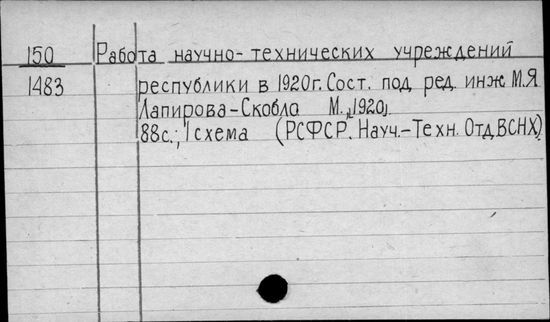 150 Работа научно-технических учреждений
1483 республики в 1920г. Сост. под ред. инж М.Я
Лапирова-Скобло М., 1920,
88с.; 1 схема (РСФСР. Науч.-Техн. Отд ВСНХ)